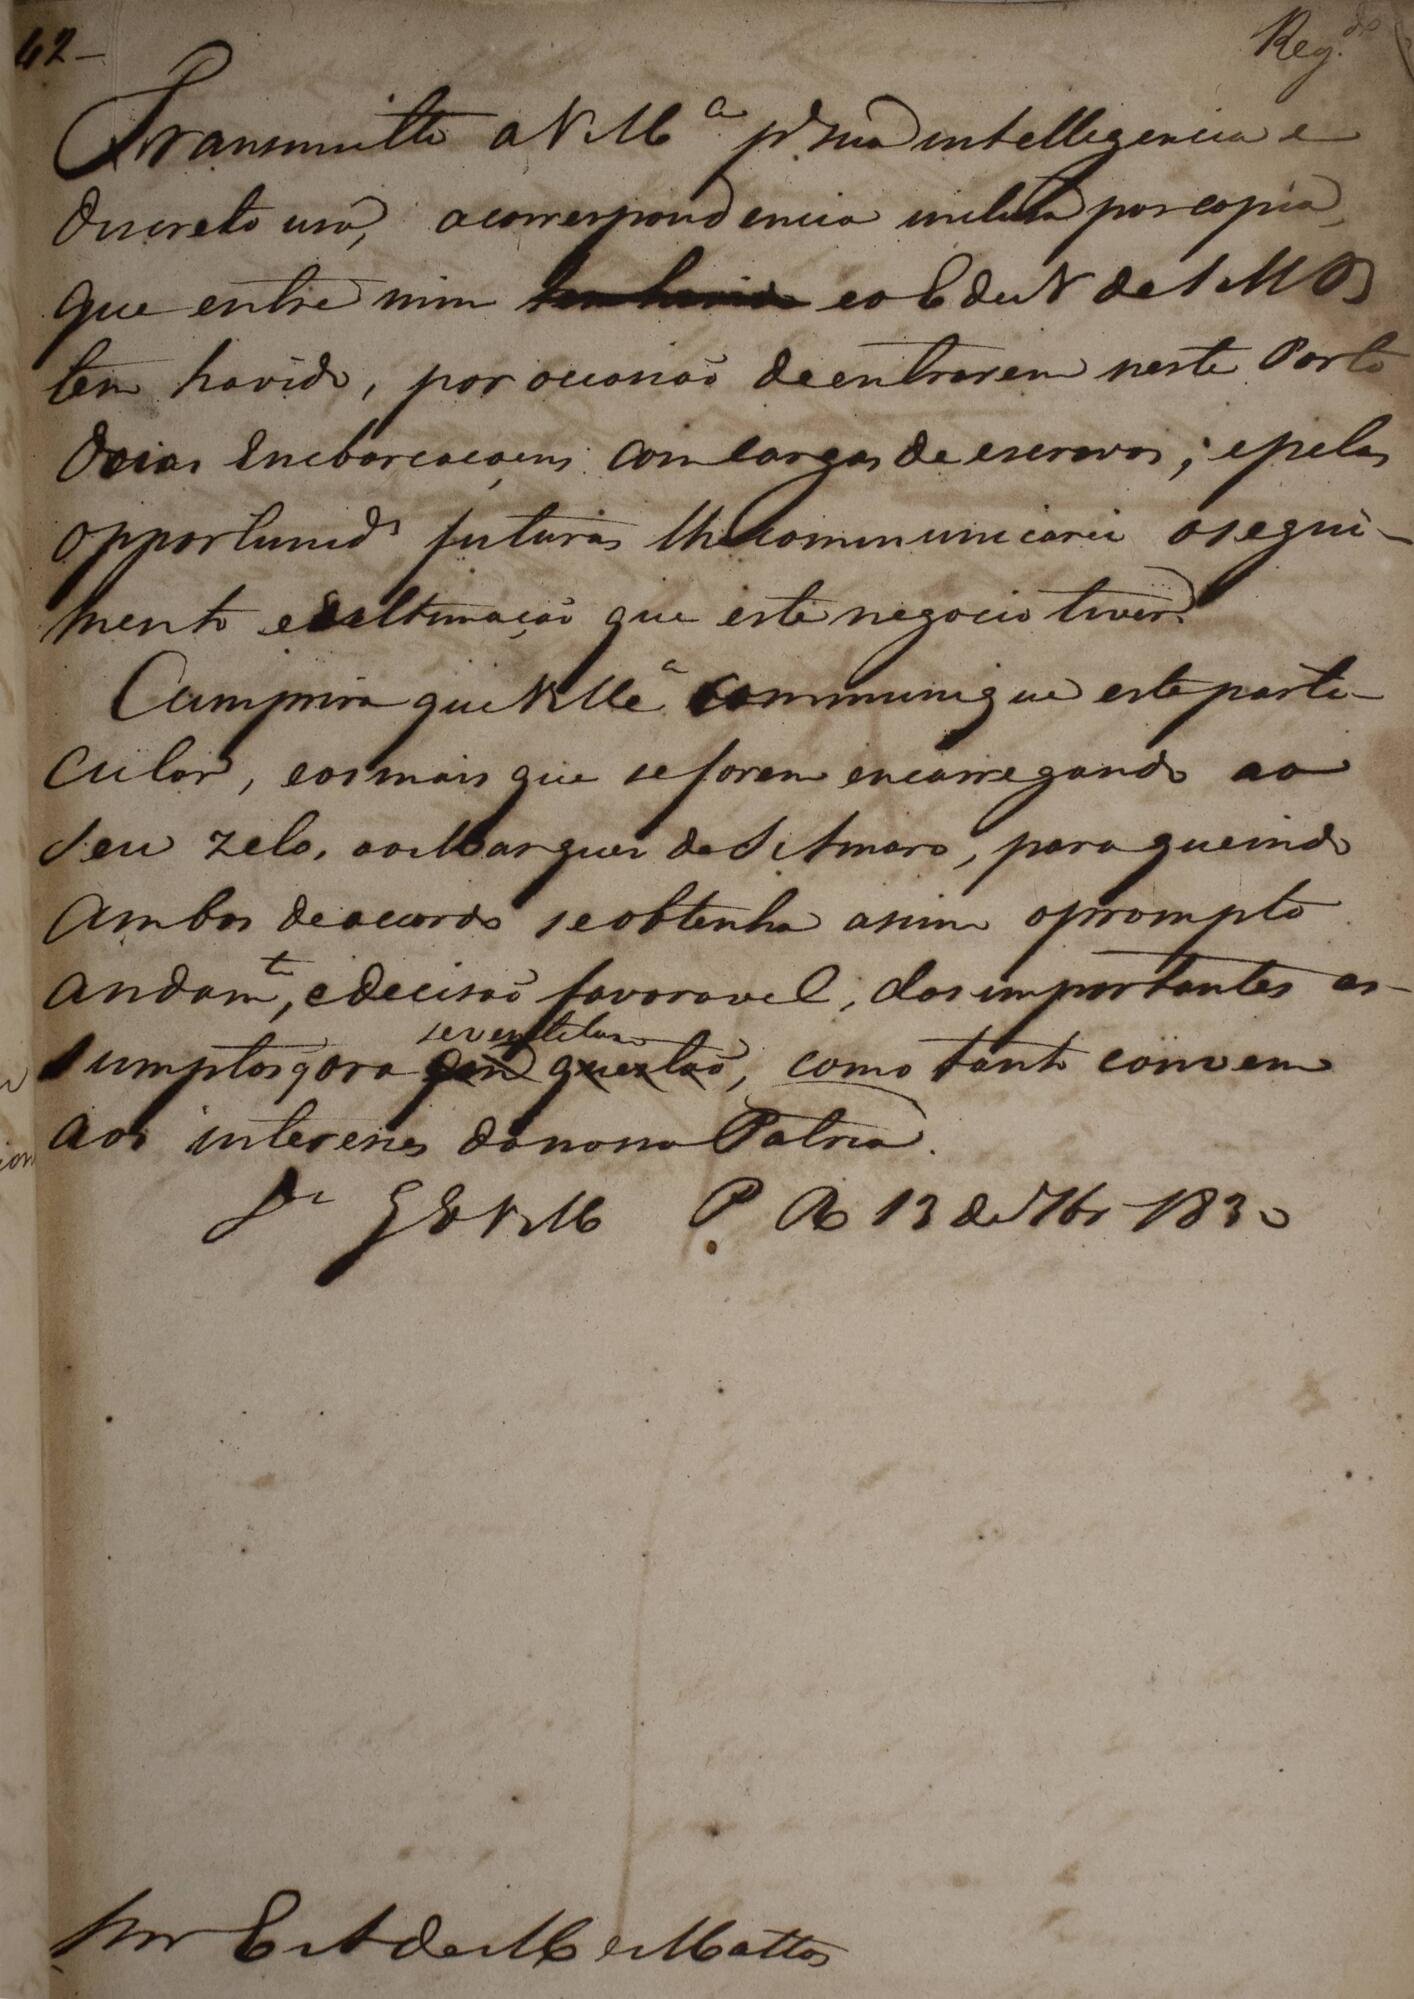 42-
Reg.do
Transmitto a V. M.ca pa sua intelligencia e
discreto uso, a correspondencia inclusa por copia,
que entre mim tem havido e o E de N de S M B
tem havido, por occasião de entrarem neste Porto
duas Embarcaçoens com cargas de escravos; e pelas
opportunids futuras lhe communicarei o segui-
mento e ultimação que este negocio tiver.
Cumprirá que V Mca communique este parti-
cular, e os mais que se forem encarregando ao
seu zelo, ao Marquez de S.to Amaro, para que indo
ambos de accordo se obtenha assim o prompto
andamto, e decisão favoravel, dos importantes as-
sumptos q ora em questão, como tanto convem
se ventilão
aos interesses da nossa Patria.
Ds Ge V. M P. R 13 de 7br 1830
Snr E A de M e Mattos